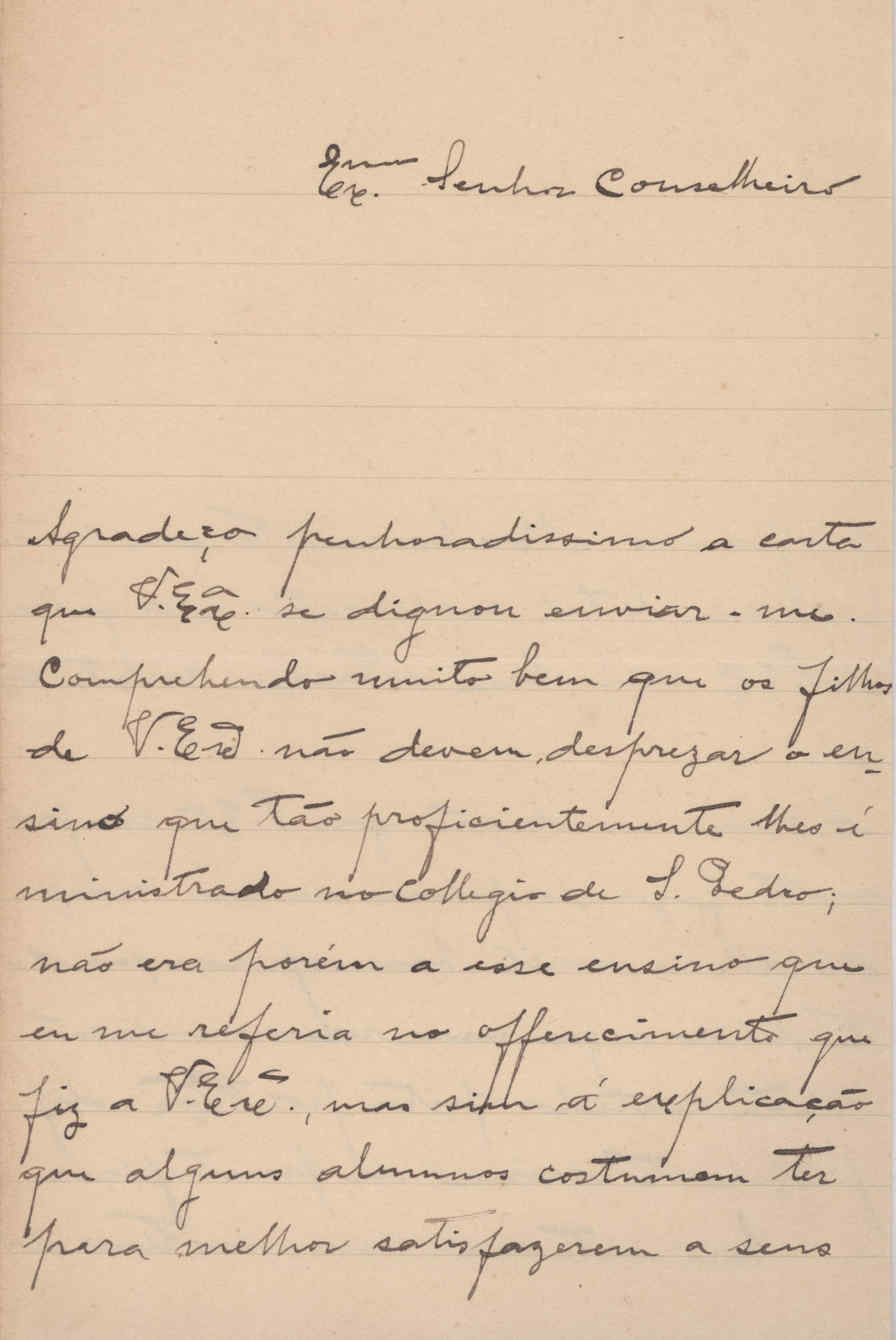 Exmo. Senhor Conselheiro
Agradeço penhoradissimo a carta
que V. Exa. se dignou enviar-me.
Comprehendo muito bem que os filhos
de V. Exa. não devem desprezar o en-
sino que tão proficientemente lhes é
ministrado no Collegio de S. Pedro;
não era porém a esse ensino que
eu me referia no offerecimento que
fiz a V. Exa., mas sim á explicação
que alguns alumnos costumam ter
para melhor satisfazerem a seus